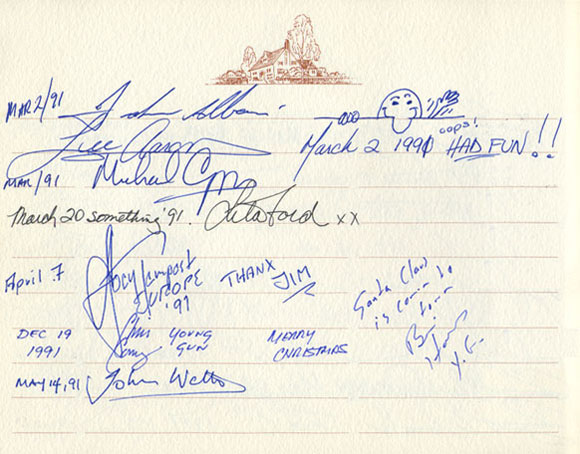 MAR 2/91 John Albani
Lee Aaron March 2 1991 oops! HAD FUN!!
MAR/91 Michael
March 20 something '91. Lita Ford xx
April 7 Joey Tempest EUROPE '91 THANX JIM
Santa Claus
is comin to
town
Y. G.
DEC 19 YOUNG MERRY
1991 GUN CHRISTMAS
MAY 14, 91 John